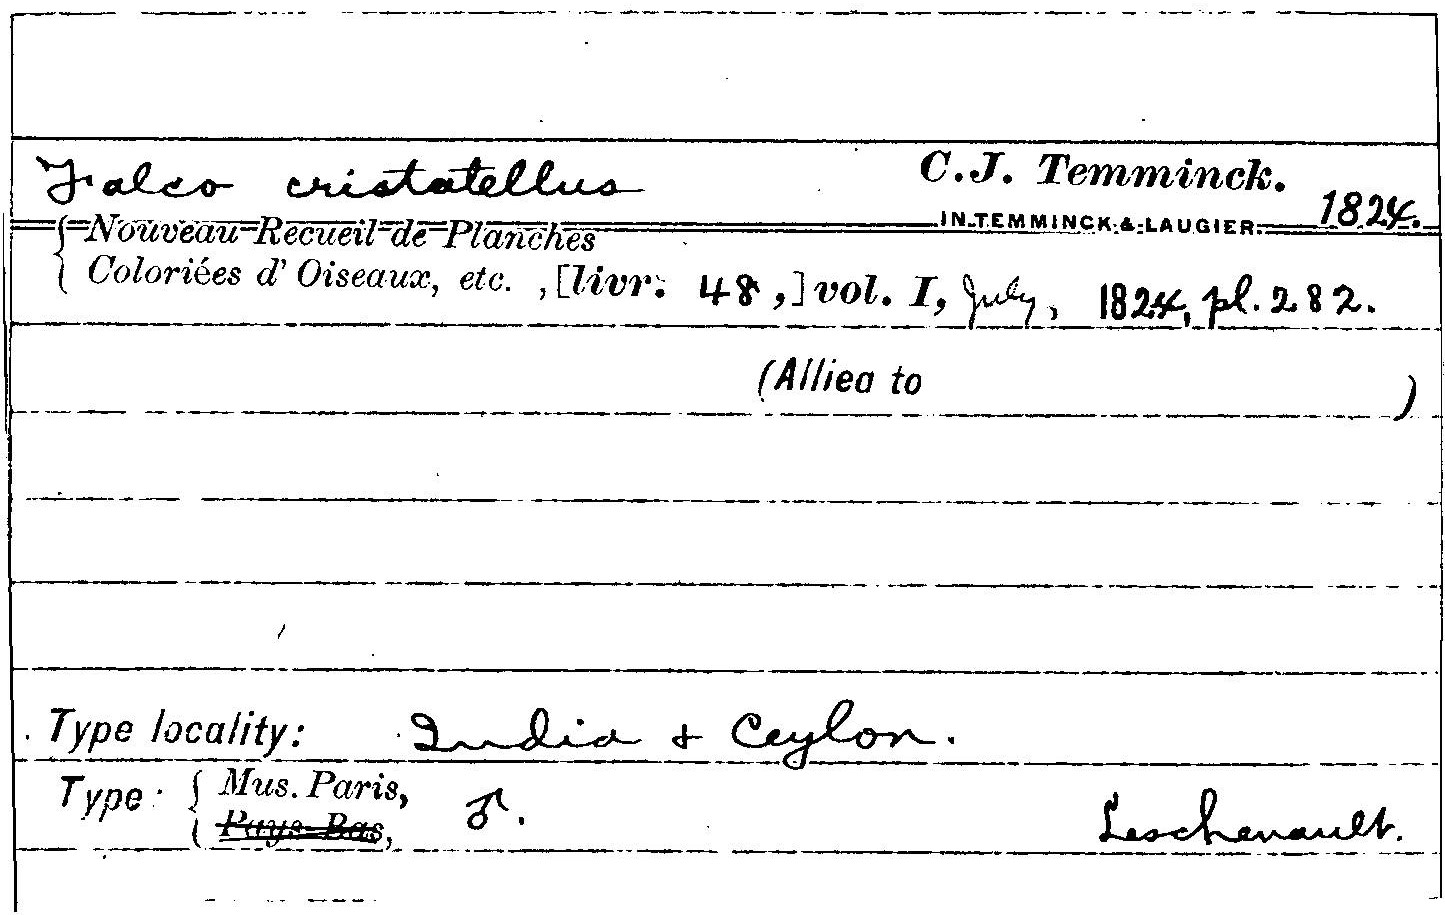 Falco cristatellus C.J. Temminck.
IN TEMMINCK & LAUGIER. 1824.
{ Nouveau Recueil de Planches
Coloriées d' Oiseaux, etc. , [livr. 48,] vol. I, July, 1824, pl. 282.
(Allied to )
Type locality: India & Ceylon.
Type { Mus. Paris, ♂. Leschenault.
Pays-Bas,